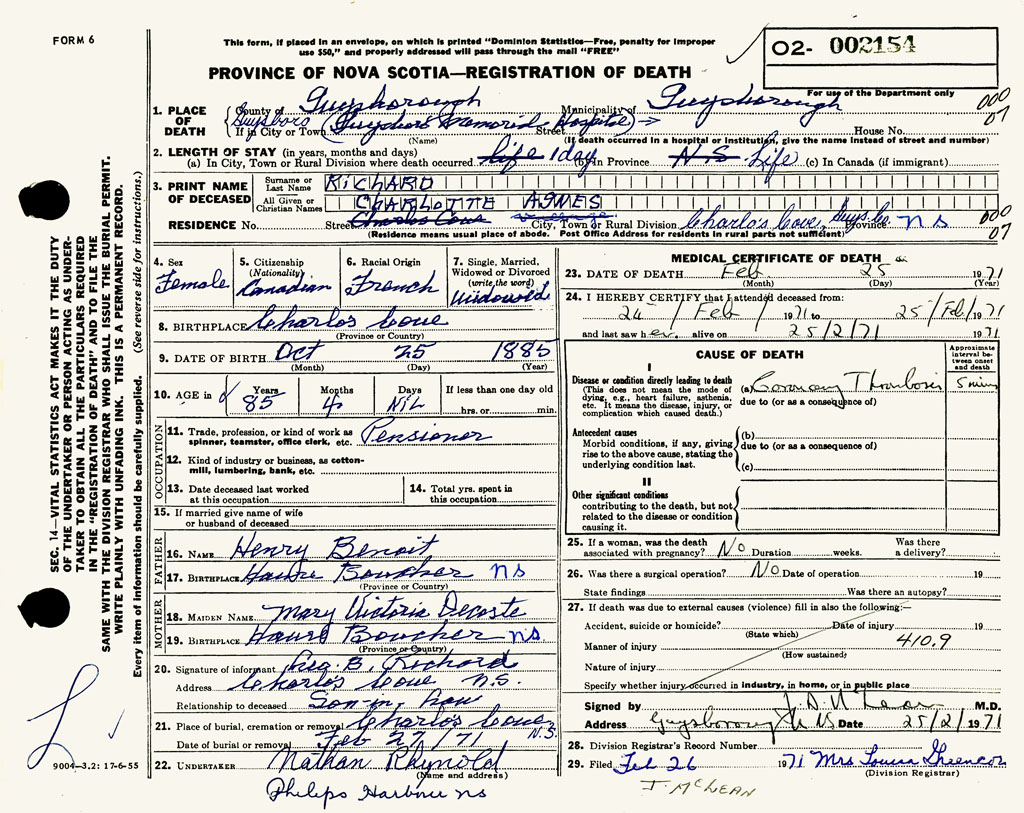 FORM 6
This form, if placed in an envelope, on which is printed "Dominion Statistics—Free, penalty for improper
use $50," and properly addressed will pass through the mail "FREE"
O2- 002154
PROVINCE OF NOVA SCOTIA—REGISTRATION OF DEATH
For use of the Department only
000
07
1. PLACE OF DEATH
County of Guysborough Municipality of Guysborough
Guysboro If in City or Town (Guysboro Memorial Hospital) → Street House No.
(Name) (If death occurred in a hospital or institution, give the name instead of street and number)
2. LENGTH OF STAY (in years, months and days)
(a) In City, Town or Rural Division where death occurred Life 1 day (b) in Province N.S Life (c) In Canada (if immigrant)
3. PRINT NAME OF DECEASED
Surname or Last Name RICHARD
All Given or Christian Names CHARLOTTE AGNES
RESIDENCE No. Street Charlos Cove City, Town or Rural Division Charlo's Cove, Guys. Co. Province NS
(Residence means usual place of abode. Post Office Address for residents in rural parts not sufficient)
000
07
4. Sex Female
5. Citizenship (Nationality) Canadian
6. Racial Origin French
7. Single, Married, Widowed or Divorced (write the word) Widowed
8. BIRTHPLACE Charlos Cove
(Province or Country)
9. DATE OF BIRTH Oct 25 1885
(Month) (Day) (Year)
10. AGE in Years 85 Months 4 Days NIL If less than one day old hrs. or min.
OCCUPATION
11. Trade, profession, or kind of work as spinner, teamster, office clerk, etc. Pensioner
12. Kind of industry or business, as cotton-mill, lumbering, bank, etc.
13. Date deceased last worked at this occupation
14. Total yrs. spent in this occupation
15. If married give name of wife or husband of deceased
FATHER
16. NAME Henry Benoit
17. BIRTHPLACE Havre Boucher NS
(Province or Country)
MOTHER
18. MAIDEN NAME Mary Victoria Decoste
19. BIRTHPLACE Havre Boucher NS
(Province or Country)
20. Signature of informant Geo. B. Richard
Address Charlos Cove N.S.
Relationship to deceased Son-in-law
21. Place of burial, cremation or removal Charlos Cove N.S.
Date of burial or removal Feb 27/71
22. UNDERTAKER Nathan Rhynold
(Name and address)
Philips Harbour NS
MEDICAL CERTIFICATE OF DEATH
23. DATE OF DEATH Feb 25 1971
(Month) (Day) (Year)
24. I HEREBY CERTIFY that I attended deceased from:
24 / Feb / 1971 to 25 / Feb / 1971
and last saw her alive on 25/2/71 1971
CAUSE OF DEATH
Approximate interval between onset and death
I
Disease or condition directly leading to death (a) Coronary Thrombosis 5 mins
(This does not mean the mode of dying, e.g., heart failure, asthenia, etc. It means the disease, injury, or complication which caused death.)
due to (or as a consequence of)
Antecedent causes
Morbid conditions, if any, giving rise to the above cause, stating the underlying condition last.
(b)
due to (or as a consequence of)
(c)
II
Other significant conditions
contributing to the death, but not related to the disease or condition causing it.
25. If a woman, was the death associated with pregnancy? No Duration weeks. Was there a delivery?
26. Was there a surgical operation? No Date of operation 19
State findings Was there an autopsy?
27. If death was due to external causes (violence) fill in also the following:—
Accident, suicide or homicide? Date of injury 19
(State which)
Manner of injury 410.9
(How sustained)
Nature of injury
Specify whether injury occurred in industry, in home, or in public place
Signed by M.D.
Address Guysborough NS Date 25/2/1971
28. Division Registrar's Record Number
29. Filed Feb 26 1971 Mrs Louise Greencorn
(Division Registrar)
J. McLEAN
SEC. 14—VITAL STATISTICS ACT MAKES IT THE DUTY
OF THE UNDERTAKER OR PERSON ACTING AS UNDER-
TAKER TO OBTAIN ALL THE PARTICULARS REQUIRED
IN THE "REGISTRATION OF DEATH" AND TO FILE THE
SAME WITH THE DIVISION REGISTRAR WHO SHALL ISSUE THE BURIAL PERMIT.
WRITE PLAINLY WITH UNFADING INK. THIS IS A PERMANENT RECORD.
Every item of information should be carefully supplied. (See reverse side for instructions.)
9004-3.2: 17-6-55